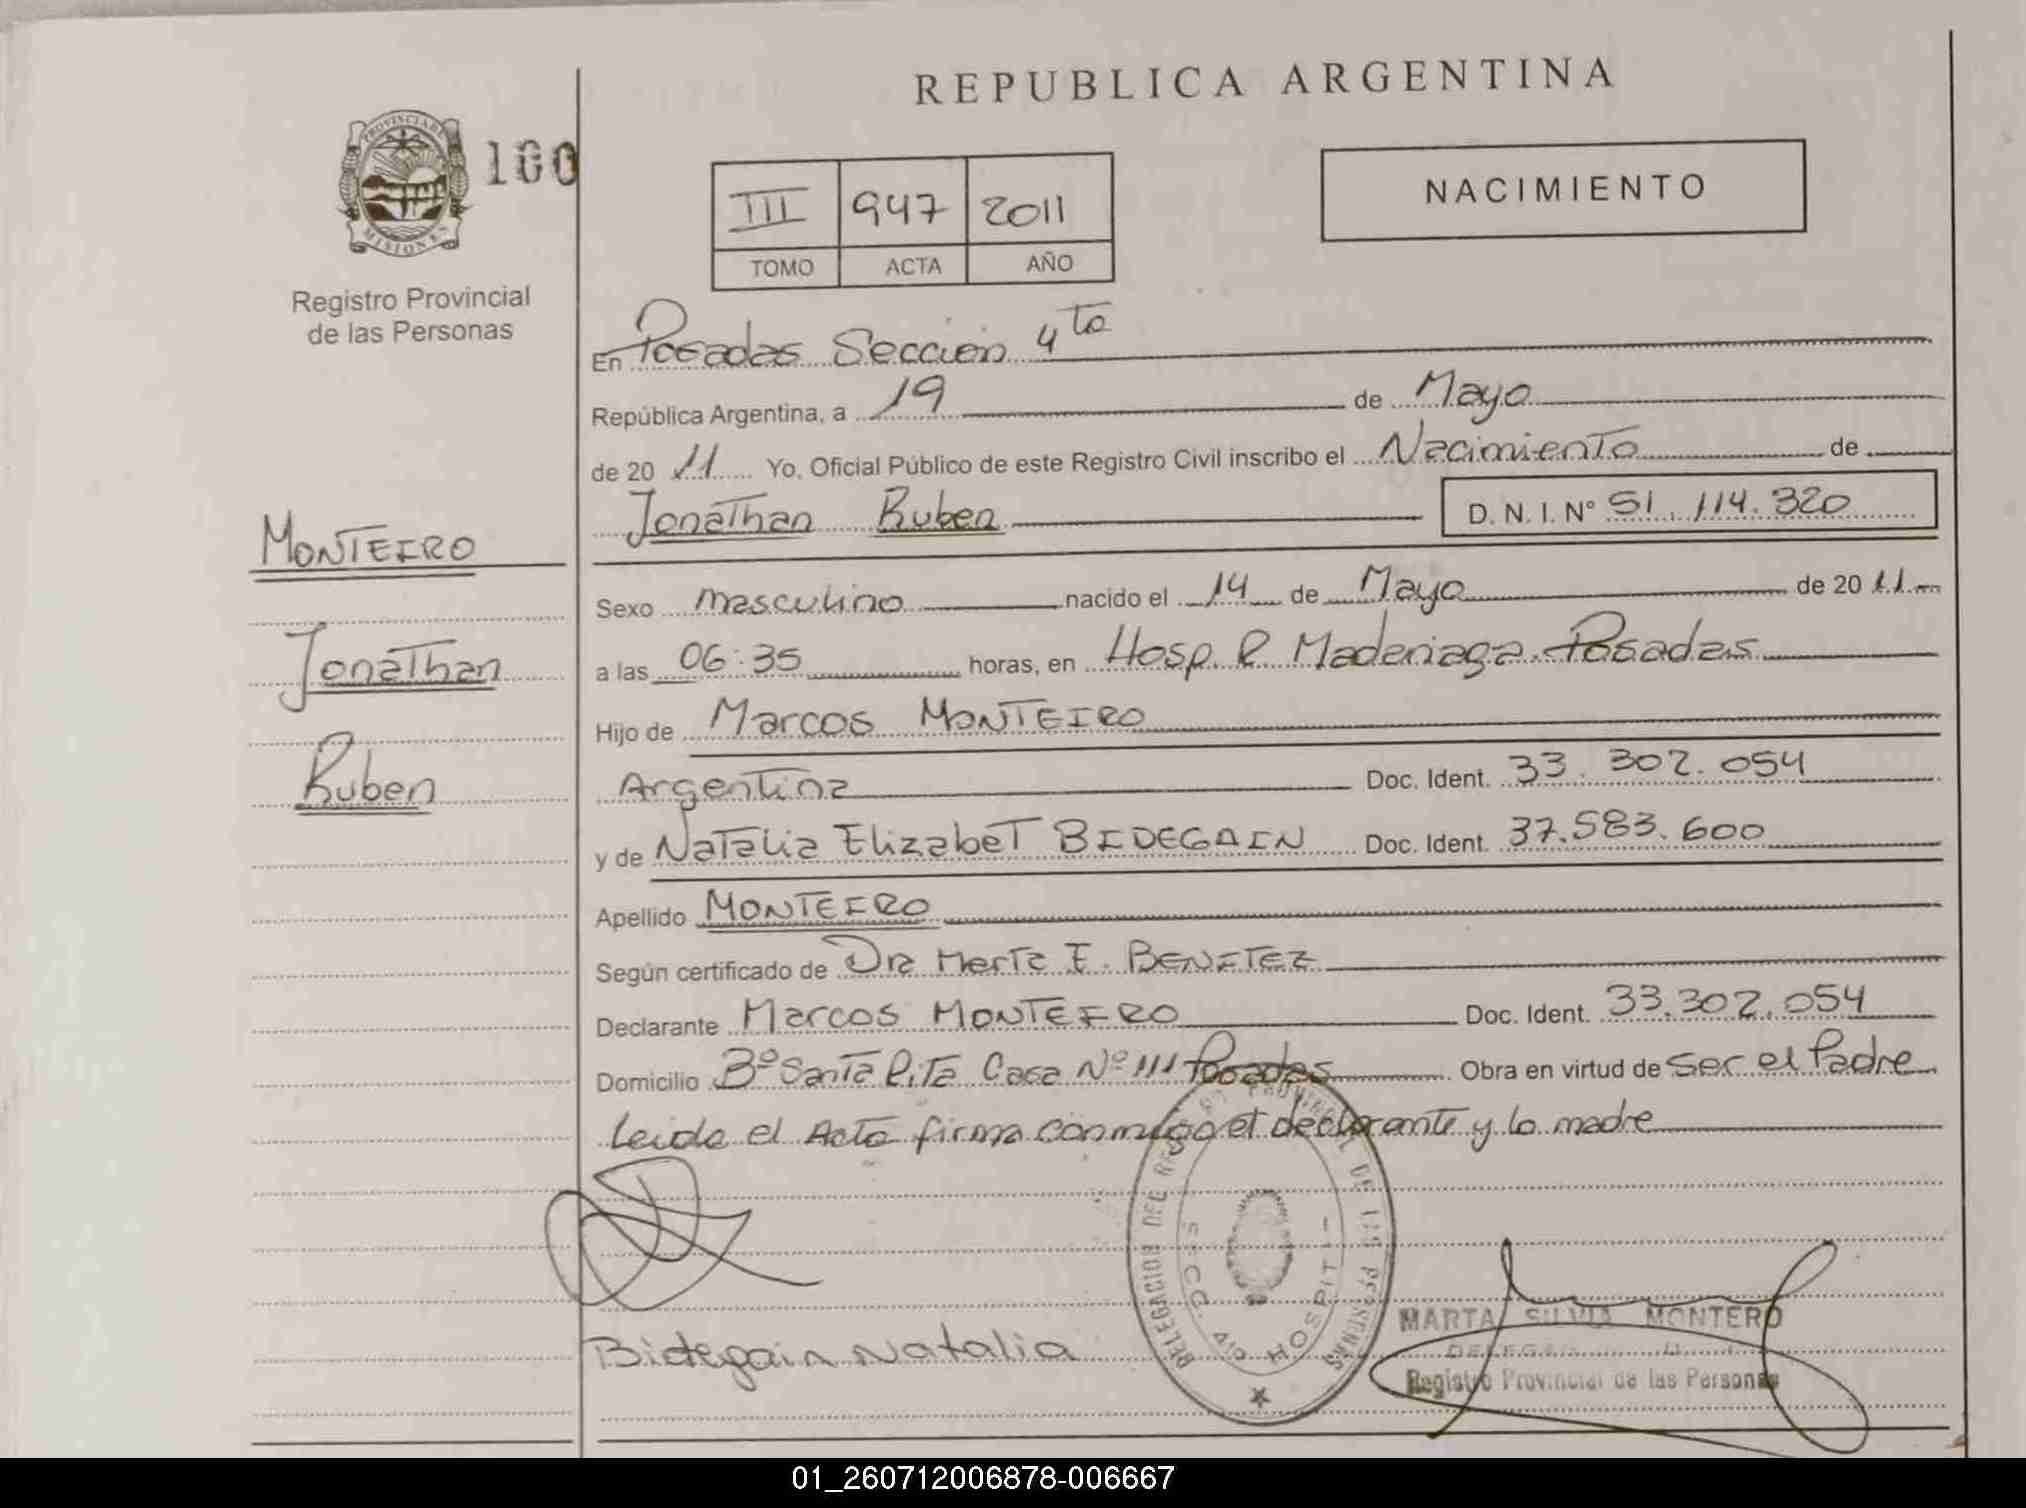 REPUBLICA ARGENTINA
PROVINCIA DE
MISIONES
100
Registro Provincial
de las Personas
III 947 2011
TOMO ACTA AÑO
NACIMIENTO
En Posadas Sección 4to
República Argentina, a 19 de Mayo
de 20 11 Yo, Oficial Público de este Registro Civil inscribo el Nacimiento de
Jonathan Ruben D. N. I. N° 51.114.320
MONTEIRO
Jonathan
Ruben
Sexo masculino nacido el 14 de Mayo de 20 11
a las 06:35 horas, en Hosp. R. Madariaga. Posadas
Hijo de Marcos MONTEIRO
Argentina Doc. Ident. 33.302.054
y de Natalia Elizabet BIDEGAIN Doc. Ident. 37.583.600
Apellido MONTEIRO
Según certificado de Dra Marta E. BENITEZ
Declarante Marcos MONTEIRO Doc. Ident. 33.302.054
Domicilio Bº Santa Rita Casa Nº 111 Posadas Obra en virtud de ser el Padre
Leida el Acta firma conmigo el declarante y la madre
DELEGACION DEL PROVINCIAL DE LAS PERSONAS
HOSPIT
Bidegain Natalia
MARTA SILVIA MONTERO
Registro Provincial de las Personas
01_260712006878-006667